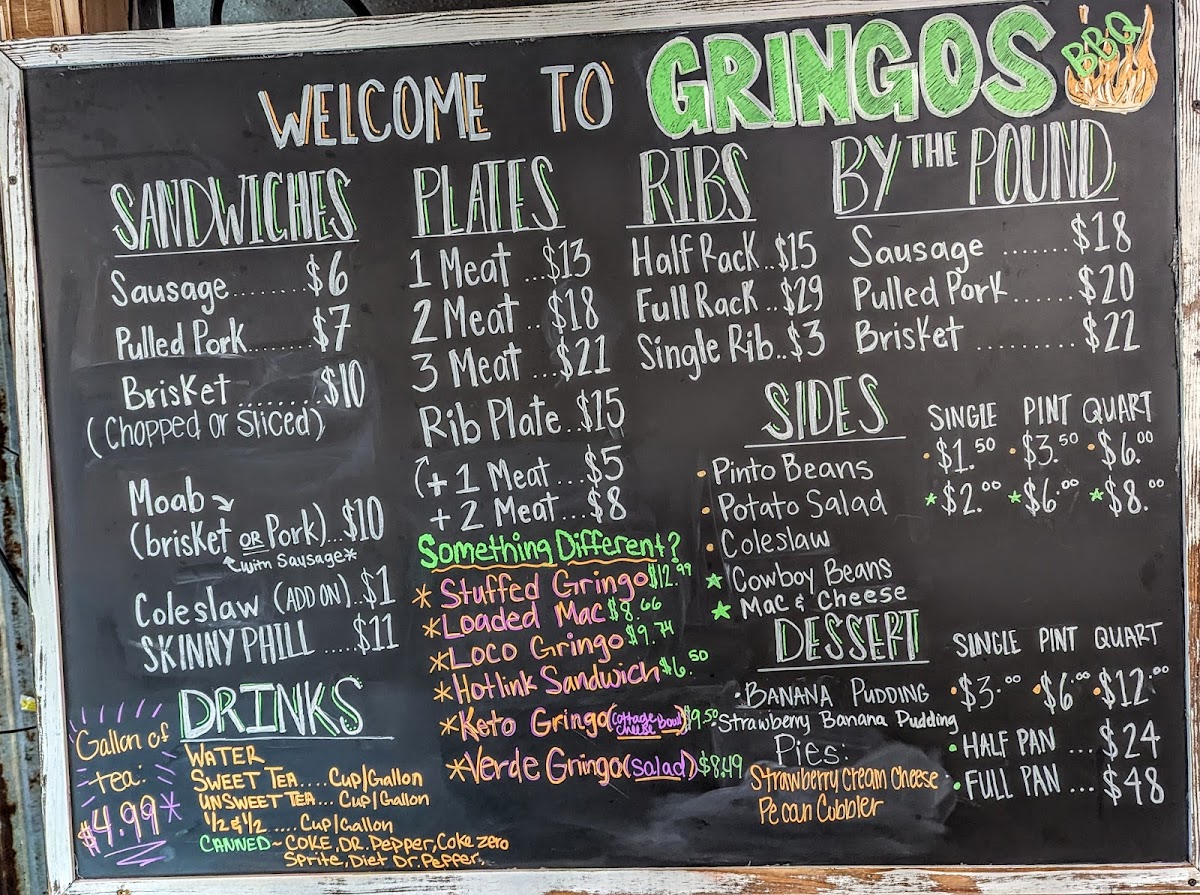 WELCOME TO GRINGOS BBQ
SANDWICHES
Sausage........$6
Pulled Pork......$7
Brisket ........$10
(Chopped or Sliced)
Moab
(brisket OR Pork)...$10
with Sausage*
Coleslaw (ADD ON)..$1
SKINNY PHILL ....$11
PLATES
1 Meat ...$13
2 Meat ..$18
3 Meat ...$21
Rib Plate..$15
(+ 1 Meat ...$5
+ 2 Meat ...$8
Something Different?
* Stuffed Gringo $12.99
* Loaded Mac $8.66
* Loco Gringo $9.74
* Hotlink Sandwich $6.50
* Keto Gringo (Cottage Cheese Bowl) $9.50
* Verde Gringo (Salad) $8.49
RIBS
Half Rack..$15
Full Rack..$29
Single Rib..$3
BY THE POUND
Sausage .......$18
Pulled Pork......$20
Brisket ...........$22
SIDES
SINGLE PINT QUART
• $1.50 • $3.50 • $6.00
* $2.00 * $6.00 * $8.00
• Pinto Beans
• Potato Salad
• Coleslaw
★ Cowboy Beans
★ Mac & Cheese
DESSERT
SINGLE PINT QUART
• BANANA PUDDING • $3.00 • $6.00 • $12.00
• Strawberry Banana Pudding
• HALF PAN ... $24
• FULL PAN ... $48
Pies:
Strawberry Cream Cheese
Pecan Cubbler
DRINKS
WATER
SWEET TEA....Cup/Gallon
UNSWEET TEA... Cup/Gallon
1/2 & 1/2 .... Cup/Gallon
CANNED~ COKE, DR. Pepper, Coke zero
Sprite, Diet Dr. Pepper.
Gallon of
tea:
$4.99*